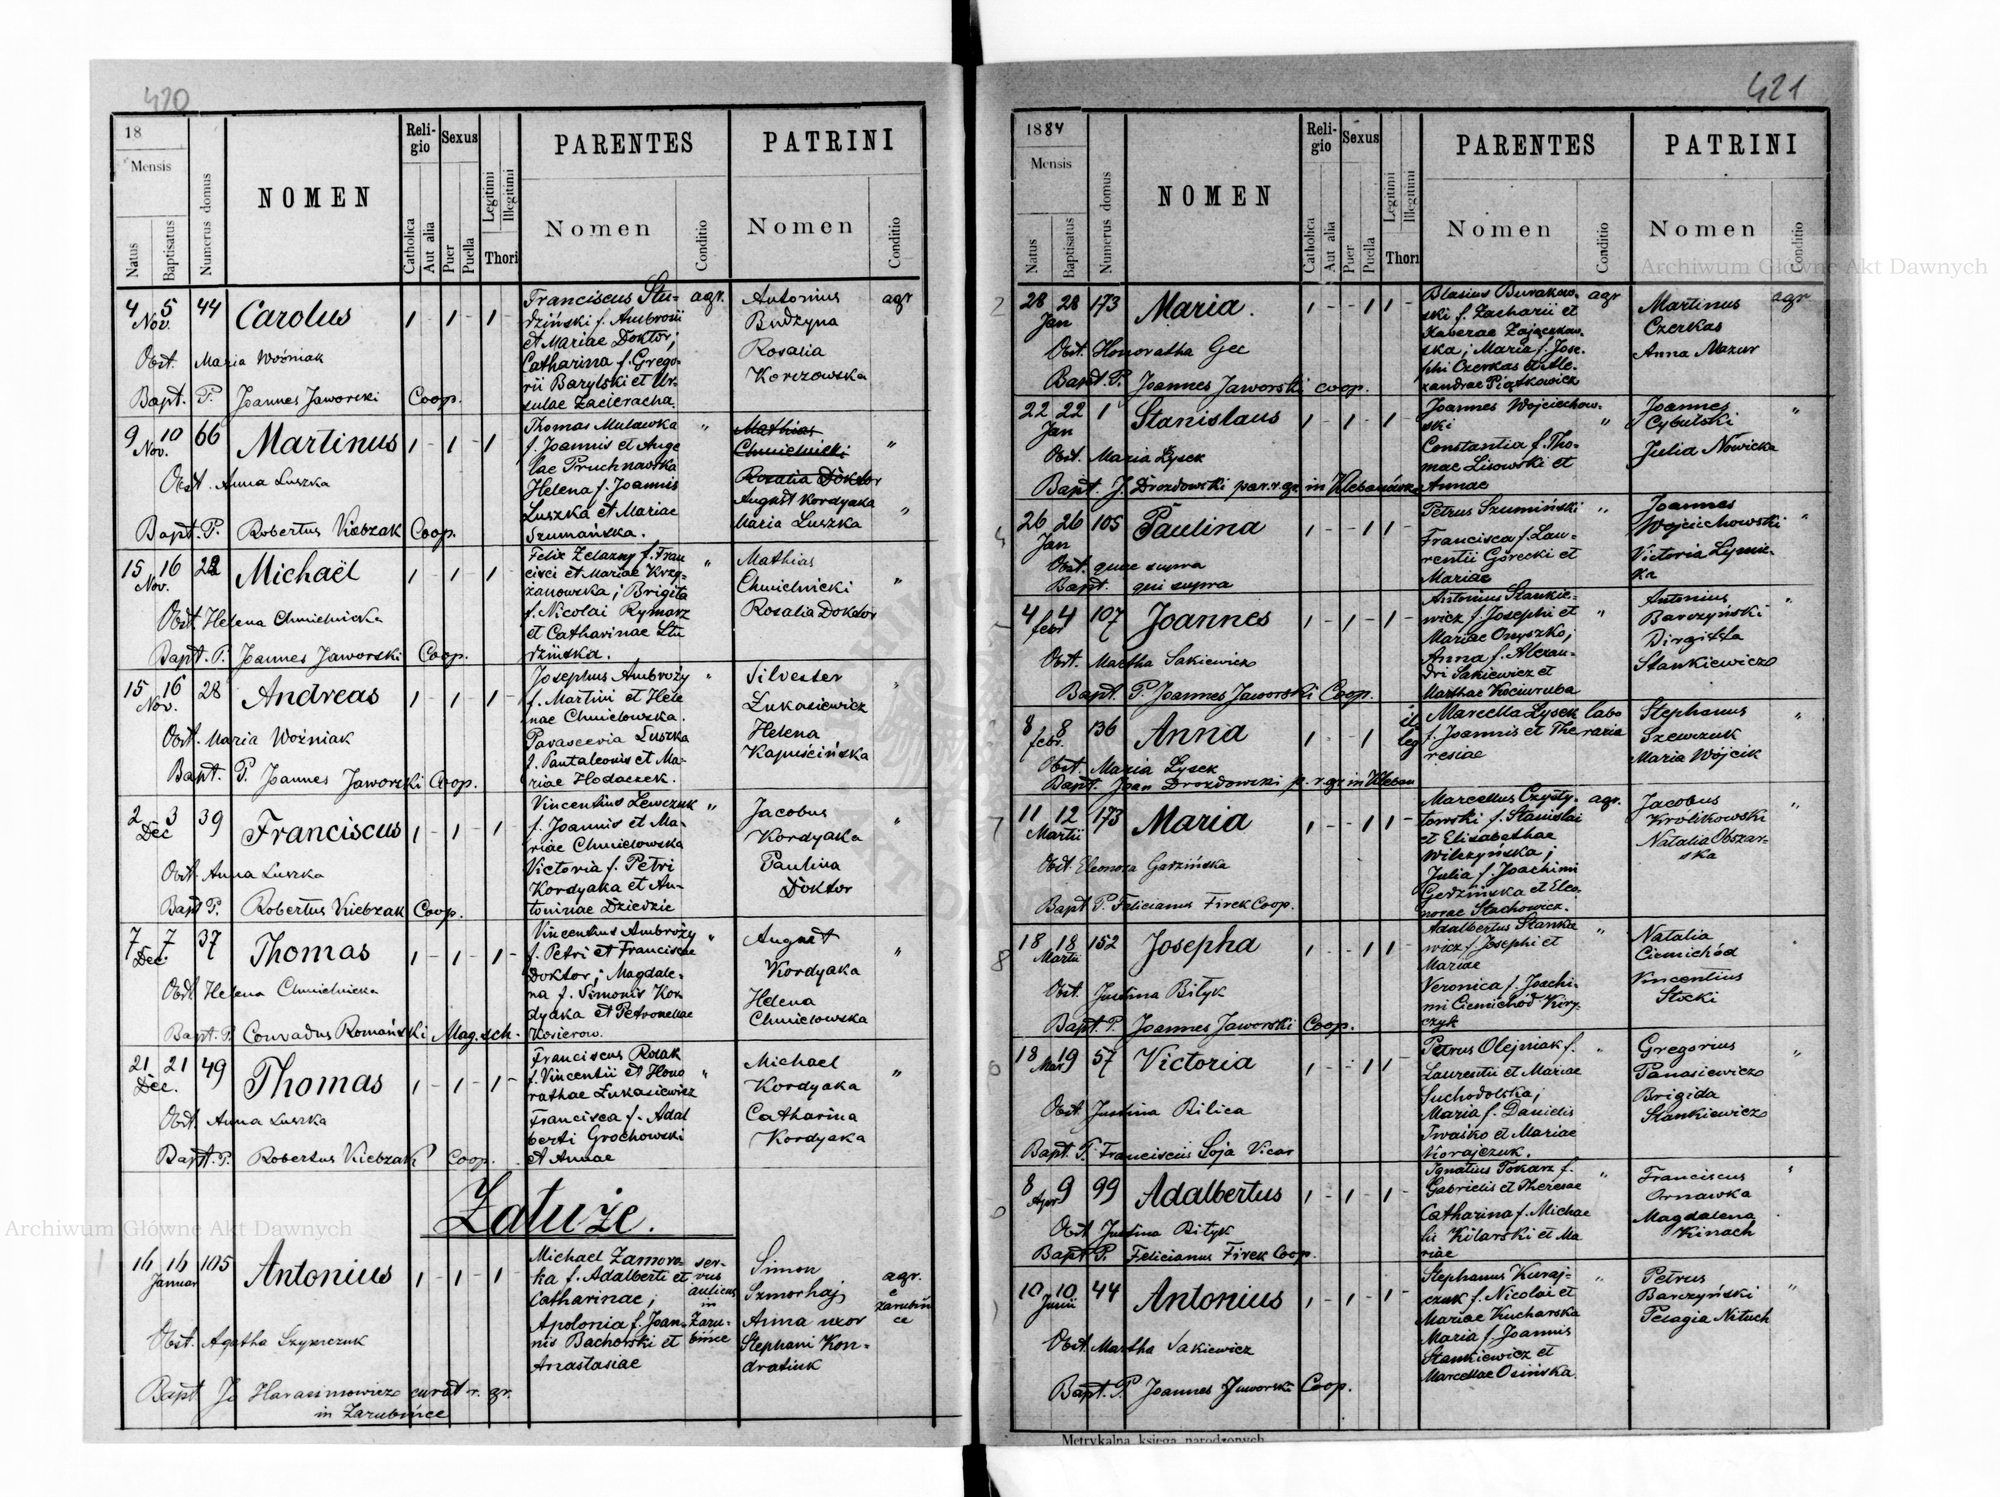 420
18
Mensis
Natus
Baptisatus
Numerus domus
NOMEN
Reli-
gio
Catholica
Aut alia
Sexus
Puer
Puella
Legitimi
Illegitimi
Thori
PARENTES
Nomen
Conditio
PATRINI
Nomen
Conditio
4 5 44 Carolus
Nov.
Obst. Maria Woźniak
Bapt. P. Joannes Jaworski Coop.
Franciscus Stu-
dziński f. Ambrosii
et Mariae Doktor;
Catharina f. Grego-
rii Barylski et Ur-
sulae Zacieracha.
agr.
Antonius
Budzyna
Rosalia
Korczowska
agr
9 10 66 Martinus
Nov.
Obst. Anna Łuszka
Bapt. P. Robertus Kiebzak Coop.
Thomas Mulawka
f. Joannis et Ange
lae Pruchnawska
Helena f. Joannis
Łuszka et Mariae
Szumańska.
"
Mathias
Chmielnicki
Rosalia Doktor
August Kordyaka
Maria Łuszka
"
"
15 16 22 Michaël
Nov.
Obst. Helena Chmielnicka
Bapt. P. Joannes Jaworski Coop.
Felix Żelazny f. Fran
cisci et Mariae Krzy-
żanowska; Brigita
f. Nicolai Rymarz
et Catharinae Stu
dzińska.
"
Mathias
Chmielnicki
Rosalia Doktor
"
15 16 28 Andreas
Nov.
Obst. Maria Woźniak
Bapt. P. Joannes Jaworski Coop.
Josephus Ambroży
f. Martini et Hele
nae Chmielowska.
Parascevia Łuszka
f. Pantaleonis et Ma-
riae Hodaczek.
"
Silvester
Łukasiewicz
Helena
Kapuścińska
"
2 3 39 Franciscus
Dec
Obst. Anna Łuszka
Bapt P. Robertus Kiebzak Coop.
Vincentius Lewczuk
f. Joannis et Ma-
riae Chmielowska
Victoria f. Petri
Kordyaka et An-
toninae Dziedzic
"
Jacobus
Kordyaka
Paulina
Doktor
"
7 7 37 Thomas
Dec.
Obst Helena Chmielnicka
Bapt. P. Conradus Romański Mag. sch.
Vincentius Ambroży
f. Petri et Franciscae
Doktor; Magdale-
na f. Simonis Kor
dyaka et Petronellae
Kosierow.
"
August
Kordyaka
Helena
Chmielowska
"
21 21 49 Thomas
Dec.
Obst. Anna Łuszka
Bapt. P. Robertus Kiebzak Coop.
Franciscus Rożak
f. Vincentii et Hono
rathae Łukasiewicz
Francisca f. Adal
berti Grochowski
et Annae
"
Michael
Kordyaka
Catharina
Kordyaka
"
Załuże.
16 16 105 Antonius
Januar
Obst. Agatha Szypczuk
Bapt Jo Harasimowicz curat r. gr.
in Zarubińce
Michael Zamora-
ka f. Adalberti et
Catharinae;
Apolonia f. Joan-
nis Bachorski et
Anastasiae
ser-
vus
aulicus
in
Zaru-
bińce
Simon
Szmorhaj
Anna uxor
Stephani Kon-
dratiuk
agr.
e
Zarubiń
ce
421
1884
Mensis
Natus
Baptisatus
Numerus domus
NOMEN
Reli-
gio
Catholica
Aut alia
Sexus
Puer
Puella
Legitimi
Illegitimi
Thori
PARENTES
Nomen
Conditio
PATRINI
Nomen
Conditio
28 28 173 Maria.
Jan
Obst. Honoratha Gec
Bapt. P. Joannes Jaworski coop.
Blasius Burakow-
ski f. Zacharii et
Xaverae Zajączkow-
ska; Maria f. Jose-
phi Czerkas et Ale-
xandrae Piątkowicz
agr
Martinus
Czerkas
Anna Mazur
agr
22 22 1 Stanislaus
Jan
Obst. Maria Łysek
Bapt. J. Drozdowski par. r. gr. in Klebanówka
Joannes Wojciechow-
ski
Constantia f. Tho-
mae Lisowski et
Annae
"
Joannes
Cybulski
Julia Nowicka
"
26 26 105 Paulina
Jan
Obst. quae supra
Bapt. qui supra
Petrus Szumiński
Francisca f. Lau-
rentii Górecki et
Mariae
"
Joannes
Wojciechowski
Victoria Łymic-
ka
"
4 4 107 Joannes
febr
Obst. Martha Sakiewicz
Bapt. P. Joannes Jaworski Coop.
Antonius Stankie-
wicz f. Josephi et
Mariae Onyszko;
Anna f. Alexan-
dri Sakiewicz et
Marthae Kociuruba
"
Antonius
Barczyński
Birgitta
Stankiewicz
"
8 8 136 Anna
febr.
Obst. Maria Łysek
Bapt. Joan Drozdowski p. r. gr in Kleban
il
leg
Marcella Łysek
f. Joannis et The
resiae
labo
raria
Stephanus
Szewczuk
Maria Wójcik
"
11 12 173 Maria
Martii
Obst Eleonora Gadzińska
Bapt P. Felicianus Firek Coop.
Marcellus Czysty-
towski f. Stanislai
et Elisabethae
Wilczyńska;
Julia f. Joachimi
Gedzińska et Eleo
norae Stachowicz.
agr.
Jacobus
Krolikowski
Natalia Obszar-
ska
"
18 18 152 Josepha
Martii
Obst. Justina Biłyk
Bapt. P. Joannes Jaworski Coop.
Adalbertus Stanke
wicz f. Josephi et
Mariae
Veronica f. Joachi-
mi Ciemichód Kiry-
czyk
"
Natalia
Ciemichód
Vincentius
Stocki
18 19 57 Victoria
Mar
Obst. Justina Bilica
Bapt. P. Franciscus Soja Vicar
Petrus Olejniak f.
Laurentii et Mariae
Suchodolska;
Maria f. Danielis
Iwaśko et Mariae
Korajczuk.
"
Gregorius
Panasiewicz
Brigida
Stankiewicz
"
8 9 99 Adalbertus
Apr
Obst Justina Biłyk
Bapt P. Felicianus Firek Coop.
Ignatius Tokarz f.
Gabrielis et Theresae
Catharina f. Michae
lis Kilarski et Ma
riae
"
Franciscus
Ornawka
Magdalena
Kinach
"
10 10 44 Antonius
Junii
Obst Martha Sakiewicz
Bapt. P Joannes Jaworski Coop.
Stephanus Kuraj-
czuk f. Nicolai et
Mariae Kucharska
Maria f. Joannis
Stankiewicz et
Marcellae Osińska.
"
Petrus
Barczyński
Pelagia Nituch
"
Metrykalna księga narodzonych
Archiwum Główne Akt Dawnych
Archiwum Główne Akt Dawnych